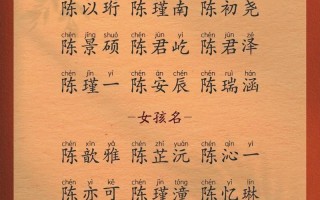 陈以珩 陈瑾南 陈初尧
chén jǐng shuò chén jūn yì chén jūn zé
陈景硕 陈君屹 陈君泽
chén jǐn yī chén ān chén chén ruì hán
陈瑾一 陈安辰 陈瑞涵
-女孩名-
chén xīn yǎ chén zhǐ yuán chén qìn yī
陈歆雅 陈芷沅 陈沁一
chén yì kě chén jǐn tóng chén yì lín
陈亦可 陈瑾潼 陈忆琳